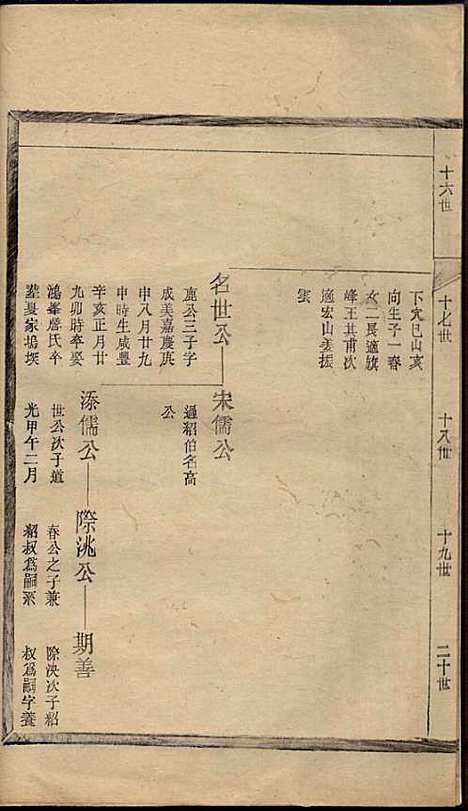 十六世
十七世
十八世
十九世
二十世
下穴巳山亥
向生子一春
女二長適旗
峰王其甫次
適宏山姜振
雲
名世公
鹿公三子字
成美嘉慶庚
申八月廿九
申時生咸豐
辛亥正月廿
九卯時卒娶
鴻峯詹氏卒
塟夏家塢塝
宋儒公
過紹伯名高
公
添儒公
世公次子道
光甲午二月
際洮公
春公之子兼
紹叔為嗣承
期善
際決次子紹
叔為嗣字養